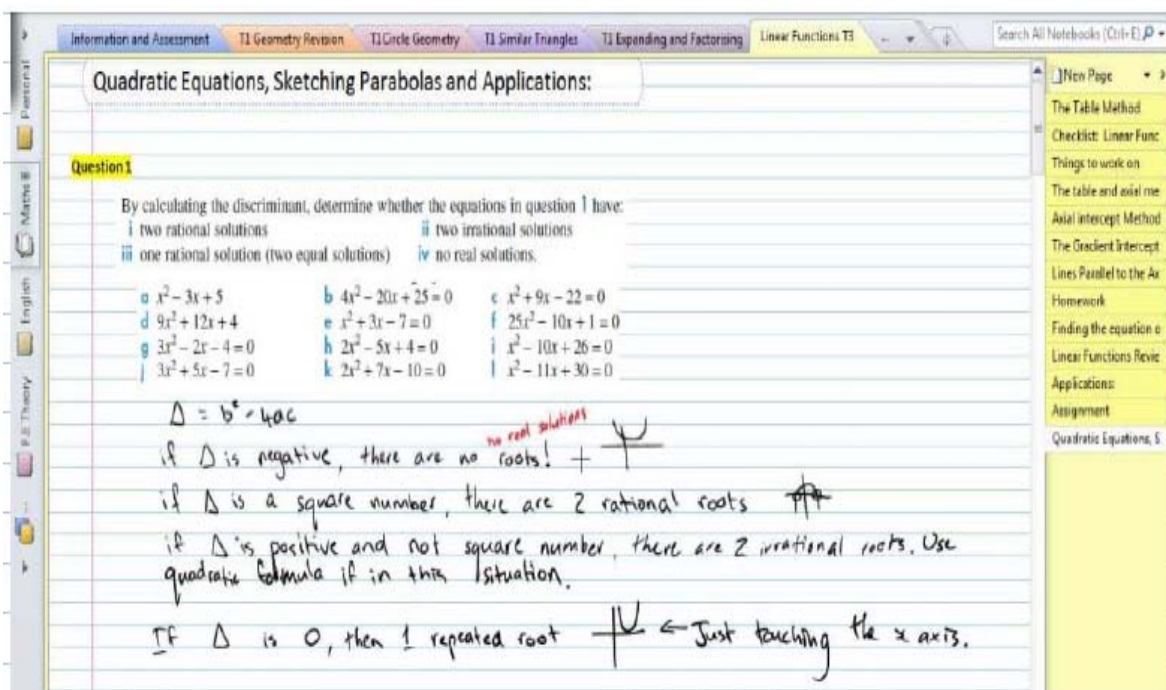 Information and Assessment T1 Geometry Revision T1 Circle Geometry T1 Similar Triangles T1 Expanding and Factorising Linear Functions T3
Search All Notebooks (Ctrl+E)
Personal
Maths
English
P.E Theory
Quadratic Equations, Sketching Parabolas and Applications:
Question 1
By calculating the discriminant, determine whether the equations in question 1 have:
i two rational solutions ii two irrational solutions
iii one rational solution (two equal solutions) iv no real solutions.
a x² − 3x + 5 b 4x² − 20x + 25 = 0 c x² + 9x − 22 = 0
d 9x² + 12x + 4 e x² + 3x − 7 = 0 f 25x² − 10x + 1 = 0
g 3x² − 2x − 4 = 0 h 2x² − 5x + 4 = 0 i x² − 10x + 26 = 0
j 3x² + 5x − 7 = 0 k 2x² + 7x − 10 = 0 l x² − 11x + 30 = 0
Δ = b² - 4ac
no real solutions
if Δ is negative, there are no roots!
if Δ is a square number, there are 2 rational roots
if Δ is positive and not square number, there are 2 irrational roots. Use
quadratic formula if in this situation.
If Δ is 0, then 1 repeated root ← Just touching the x axis.
New Page
The Table Method
Checklist: Linear Func
Things to work on
The table and axial me
Axial intercept Method
The Gradient Intercept
Lines Parallel to the Ax
Homework
Finding the equation o
Linear Functions Revie
Applications:
Assignment
Quadratic Equations, S